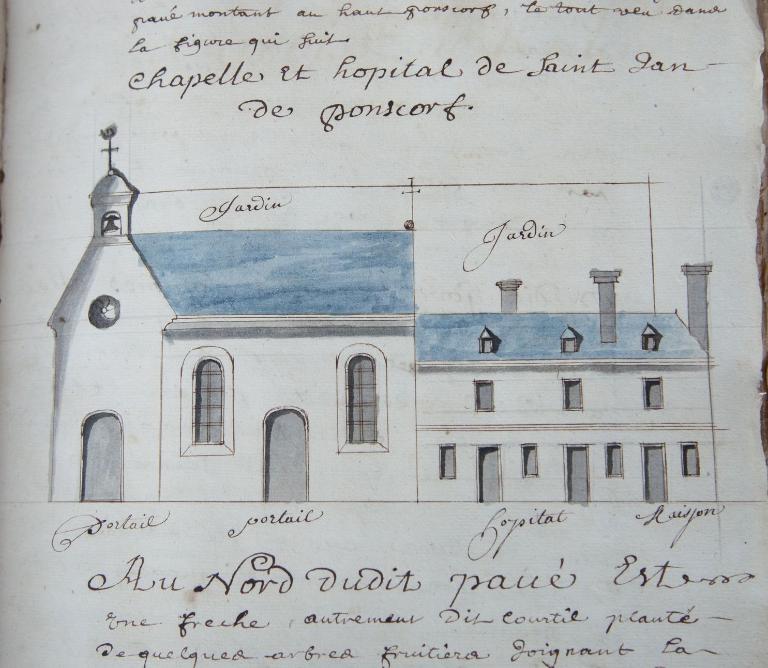 pavé montant au haut ponscorf, le tout veu dans
la figure qui suit
Chapelle Et hopital de Saint Jan
de ponscorf.
Jardin
Jardin
Portail
portail
hopital
Maison
Au Nord dudit pavé Est
Une freche, autrement Dit Courtil planté
De quelques arbres fruitiers Joignant La